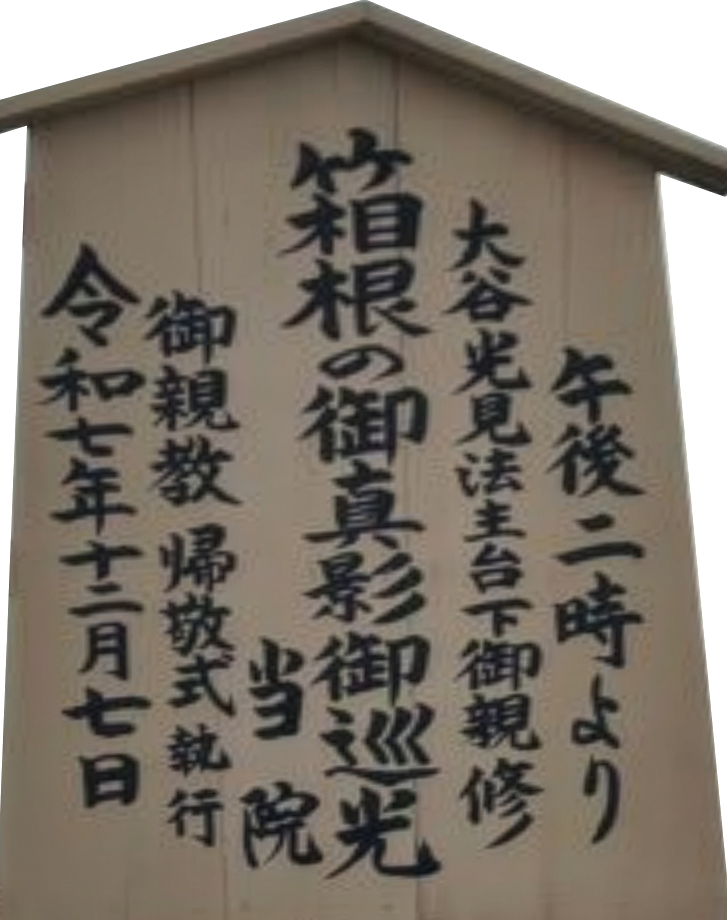 午後二時より
大谷光見法主台下御親修
箱根の御真影御巡光
当院
御親教 帰敬式執行
令和七年十二月七日